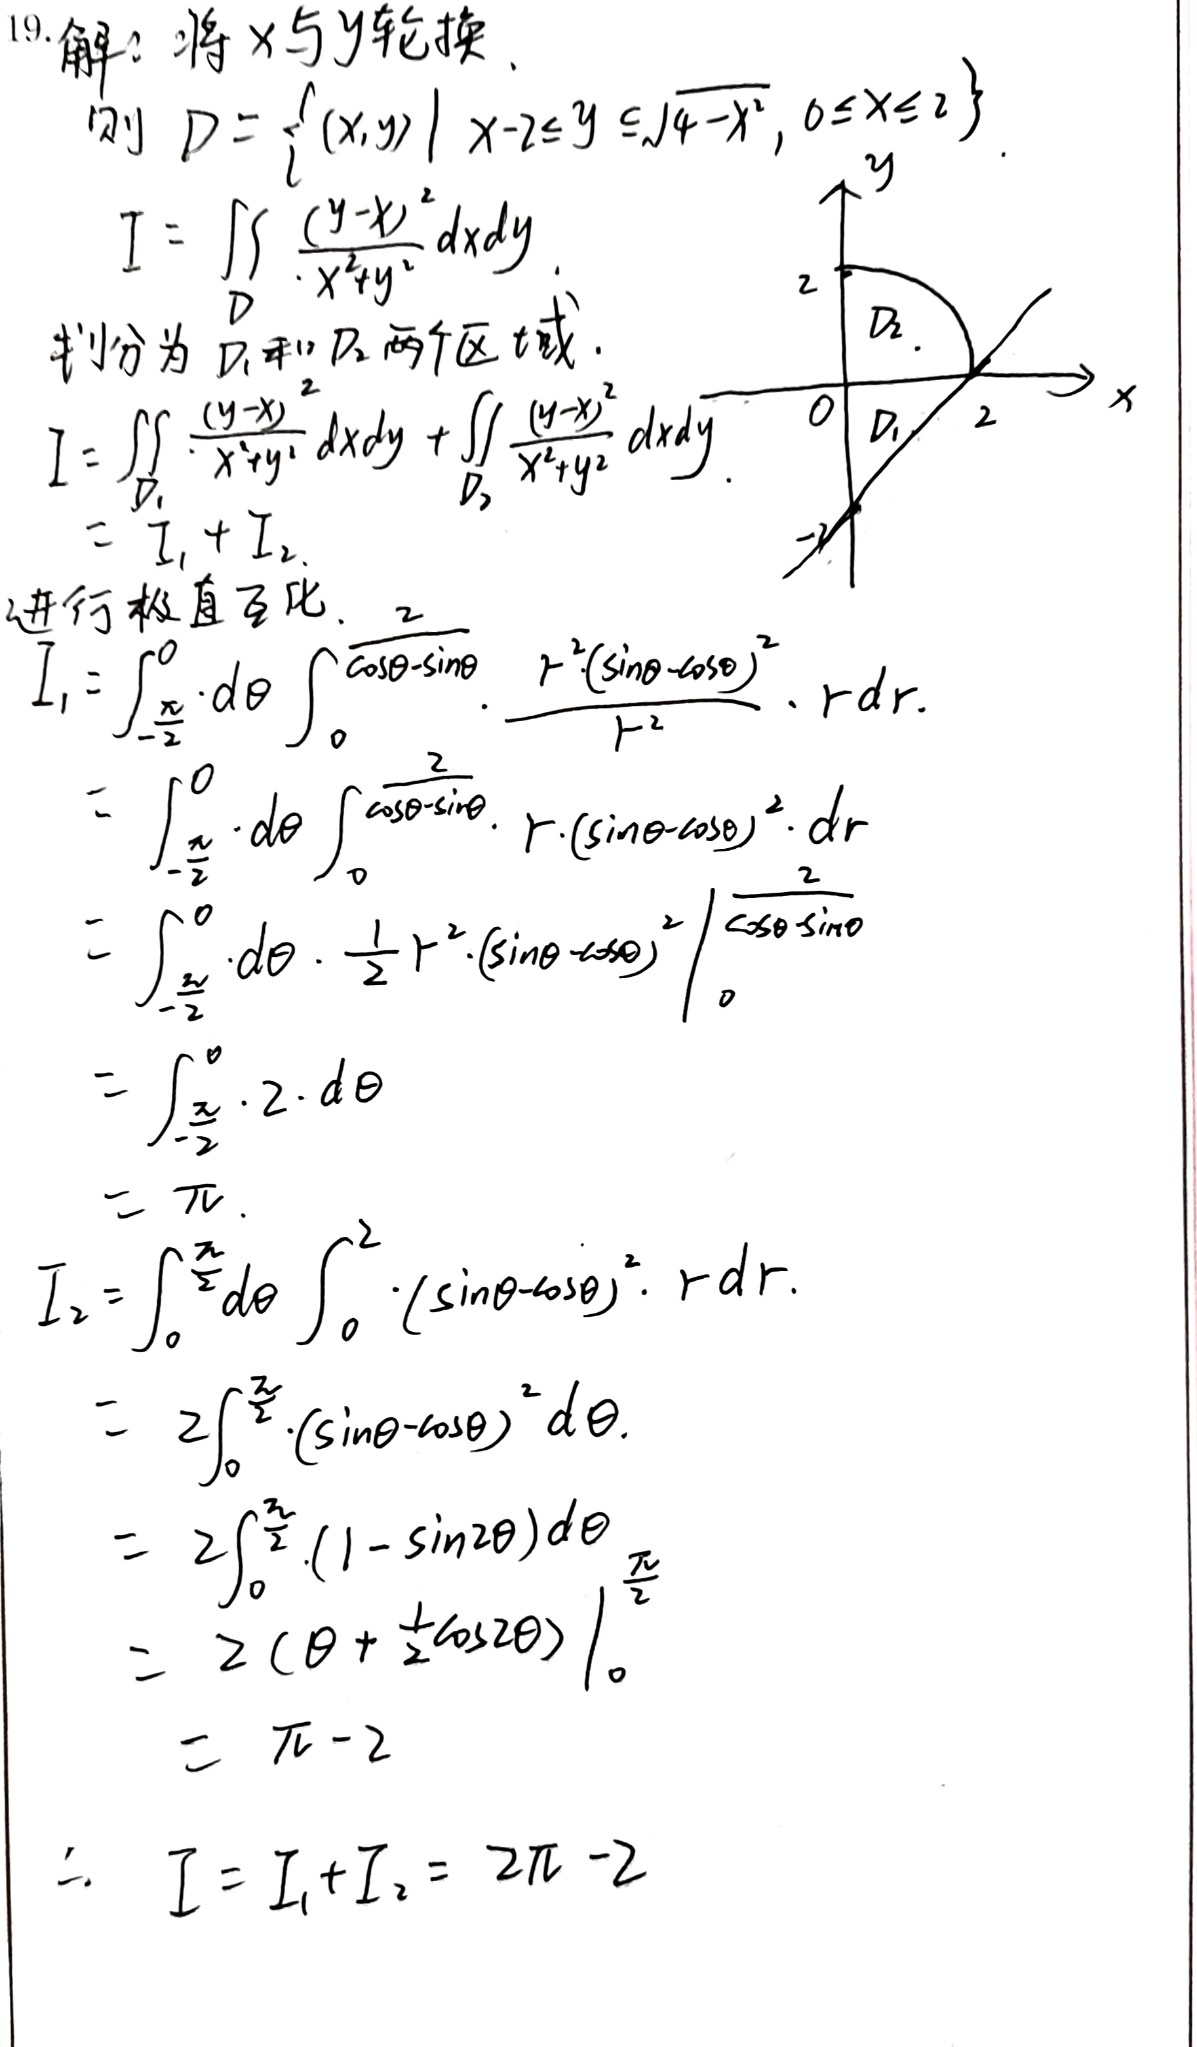 19. 解: 将 x 与 y 轮换.
则 D = {(x,y) | x-2 ≤ y ≤ √(4-x²), 0 ≤ x ≤ 2}.
I = ∬_D (y-x)²/(x²+y²) dxdy.
划分为 D₁ 和 D₂ 两个区域.
I = ∬_D₁ (y-x)²/(x²+y²) dxdy + ∬_D₂ (y-x)²/(x²+y²) dxdy.
= I₁ + I₂.
y
2
D₂.
0
D₁
2
x
-2
进行极直互化.
I₁ = ∫_{-π/2}^{0} · dθ ∫_0^{2/(cosθ-sinθ)} · r²·(sinθ-cosθ)²/r² · r dr.
= ∫_{-π/2}^{0} · dθ ∫_0^{2/(cosθ-sinθ)} · r·(sinθ-cosθ)² · dr
= ∫_{-π/2}^{0} · dθ · 1/2 r²·(sinθ-cosθ)² |_0^{2/(cosθ-sinθ)}
= ∫_{-π/2}^{0} · 2 · dθ
= π.
I₂ = ∫_0^{π/2} dθ ∫_0^2 · (sinθ-cosθ)² · r dr.
= 2∫_0^{π/2} · (sinθ-cosθ)² dθ.
= 2∫_0^{π/2} · (1-sin2θ) dθ
= 2(θ + 1/2 cos2θ) |_0^{π/2}
= π-2
∴ I = I₁ + I₂ = 2π-2